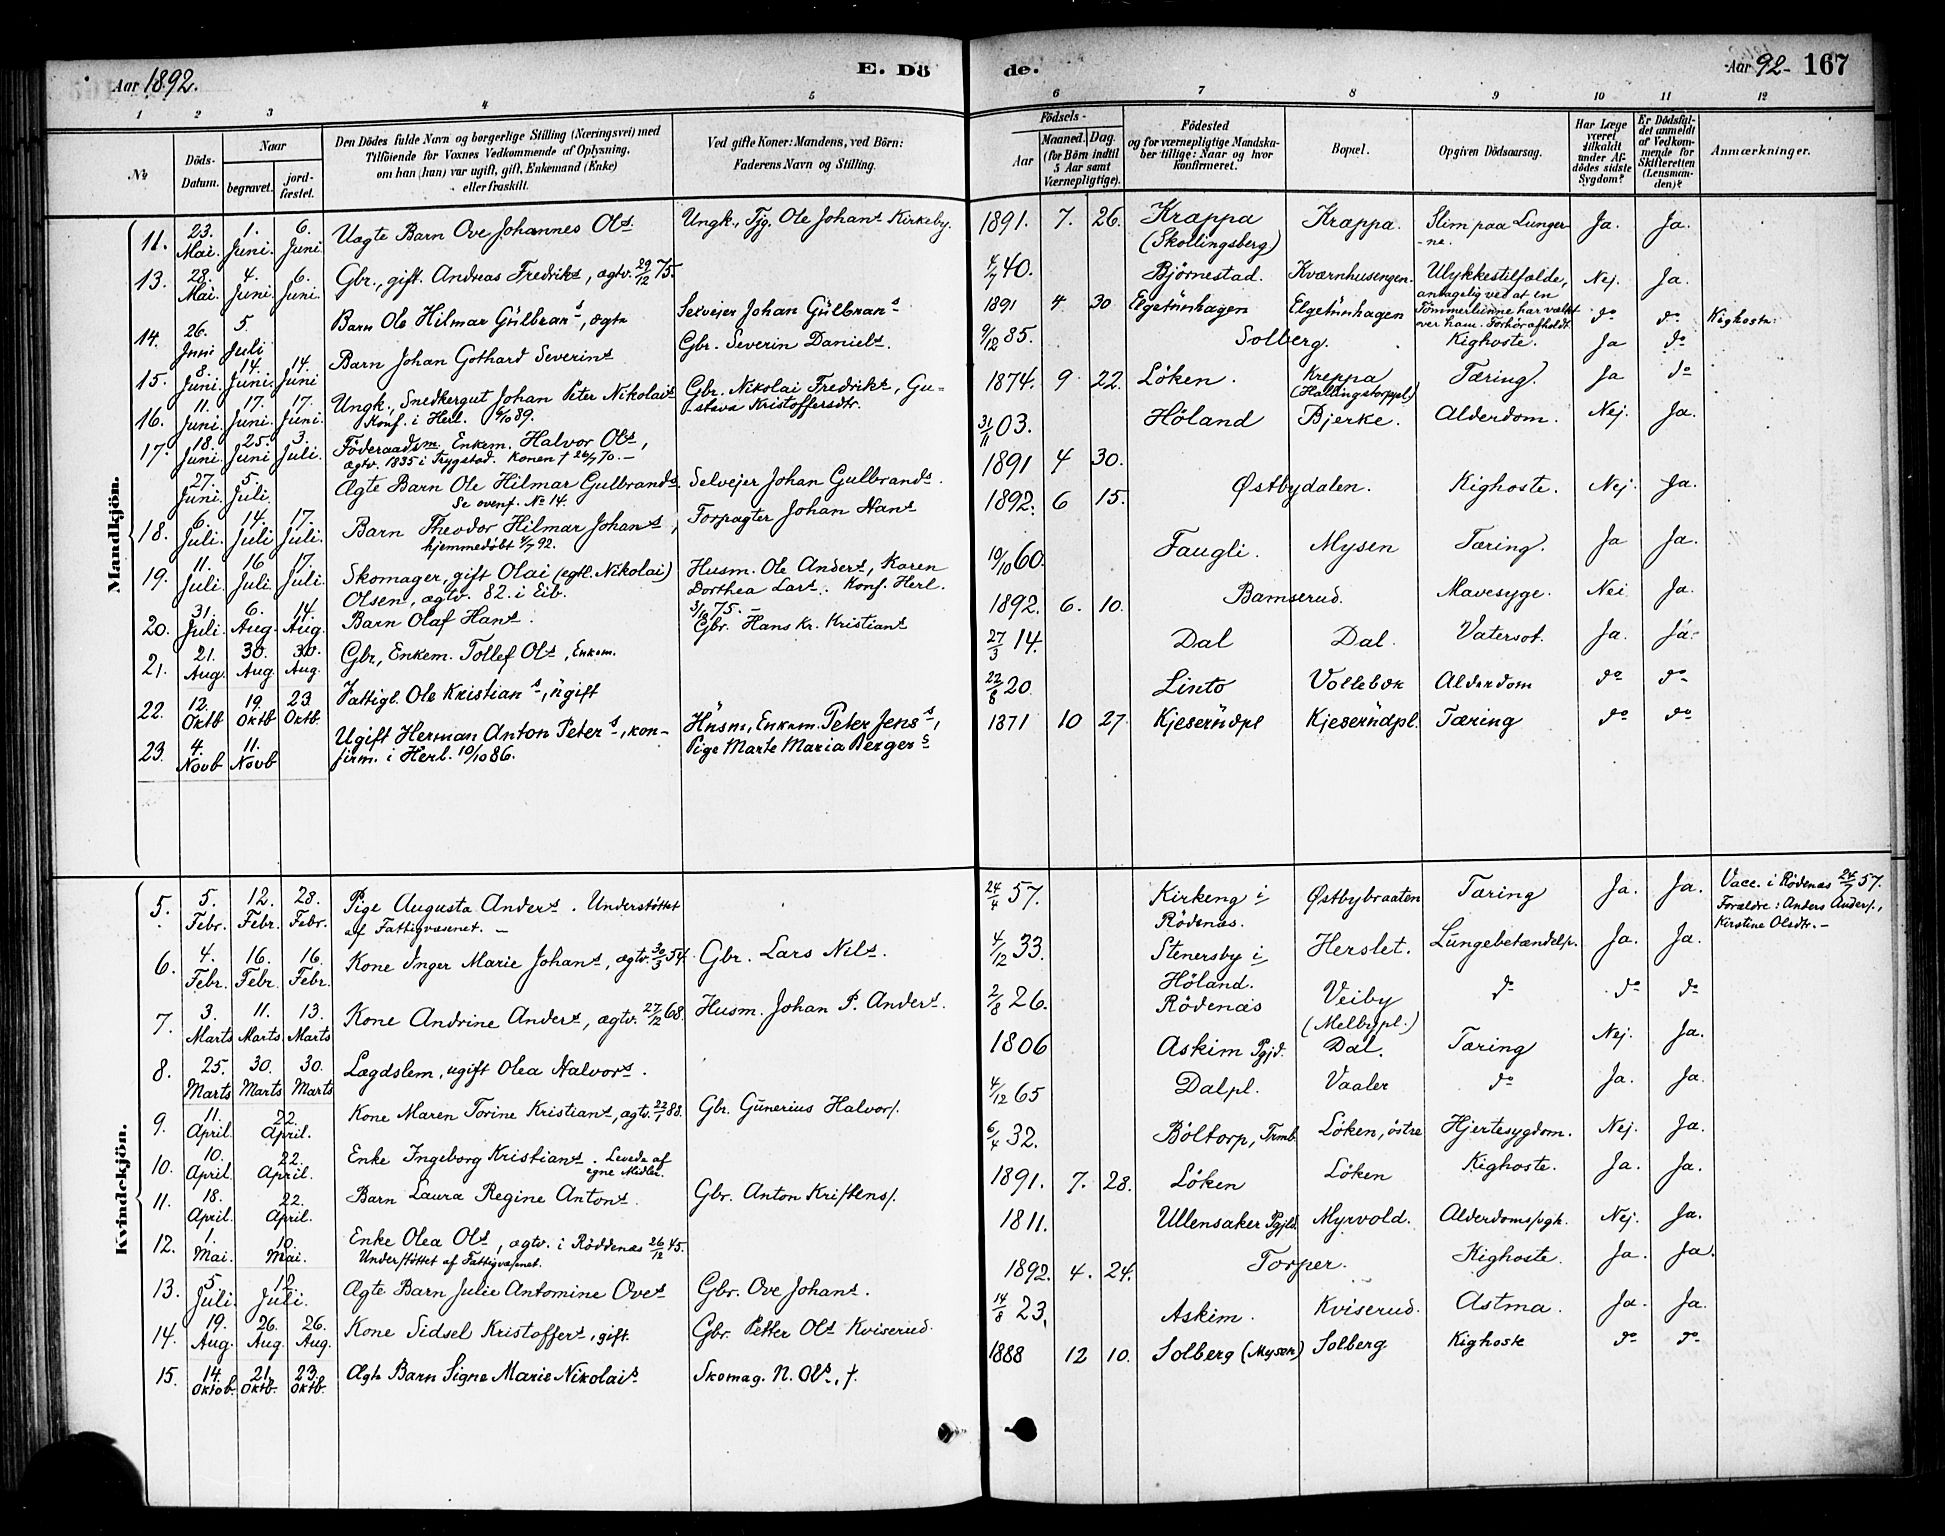 Aar 1892.
E. Dö
de.
Aar 92. 167
1 2 3 4 5 6 7 8 9 10 11 12
№
Döds-Datum.
Naar
begravet.
jord-fæstet.
Den Dödes fulde Navn og borgerlige Stilling (Næringsvei) med
Tilföiende for Voxnes Vedkommende af Oplysning,
om han (hun) var ugift, gift, Enkemand (Enke)
eller fraskilt.
Ved gifte Koner: Mandens, ved Börn:
Faderens Navn og Stilling.
Födsels-
Aar
Maaned. Dag.
(for Börn indtil
5 Aar samt
Værnepligtige).
Födested
og for værnepligtige Mandska-
ber tillige: Naar og hvor
konfirmeret.
Bopæl.
Opgiven Dödsaarsag.
Har Læge
været
tilkaldt
under Af-
dödes sidste
Sygdom?
Er Dödsfal-
det anmeldt
af Vedkom-
mende for
Skifteretten
(Lensman-
den)?
Anmærkninger.
Mandkjön.
11. 23. Mai. 1. Juni. 6. Juni. Uægte Barn Ove Johannes Ols. Ungk., Tjg. Ole Johans Kirkeby. 1891. 7. 26. Kræppa (Skollingsberg) Kræppa. Slim paa Lunger-ne. Ja. Ja.
13. 28. Mai. 4. Juni. 6. Juni. Gbr., gift. Andreas Fredriks, ægtv. 29/12 75. 4/7 40. Bjørnestad. Kværnhusengen. Ulykkestilfælde, antagelig ved at en Tömmerlunne har væltet over ham. Forhör afholdt. Nej. Ja.
14. 26. Juni 5. Juli Barn Ole Hilmar Gülbrans, ægte Selvejer Johan Gülbrans 1891 4 30 Elgetünhagen Elgetünhagen do do Kighoste.
15. 8. Juni. 14. Juni. 14. Juni Barn Johan Gothard Severins Gbr. Severin Daniels. 9/12 85. Solberg. Kighoste. Ja do
16. 11. Juni. 17. Juni. 17. Juni. Ungk., Snedkergut Johan Peter Nikolais Konf. i Herl. 6/10 89. Gbr. Nikolai Fredriks, Gu-stava Kristoffersdtr. 1874. 9 22. Löken. Kreppa (Hallingstorppl.) Tæring. Ja do
17. 18. Juni. 25. Juni 3. Juli. Föderaadsm. Enkem. Halvor Ols, ægtv. 1835 i Trygstad. Konen † 26/7 70. — 31/11 03. Höland Bjerke. Alderdom. Nej. Ja.
27. Juni. 5. Juli. Ægte Barn Ole Hilmar Gulbrands. Se ovenf. No 14. Selvejer Johan Gulbrands. 1891 4 30.
18. 6. Juli. 14. Juli 17. Juli. Barn Theodor Hilmar Johans, hjemmedøbt 4/7 92. Forpagter Johan Hans 1892. 6 15. Østbydalen. Kighoste. Nej. Ja.
19. 11. Juli. 16 Juli 17. Juli. Skomager, gift Olai (egtl. Nikolai) Olsen, ægtv. 82. i Eib. Husm. Ole Anders, Karen Dorthea Lars. Konf. Herl. 3/10 75. — 10/10 60. Faugli. Mysen Tæring. Ja Ja.
20. 31. Juli. 6. Aug. 14. Aug. Barn Olaf Hans. Gbr. Hans Kr. Kristians 1892. 6. 10. Bamserud. Mavesyge. Nei Ja.
21. 21. Aug. 30. Aug 30. Aug. Gbr, Enkem. Tollef Ols, Enkem. 27/3 14. Dal Dal. Vatersot. Ja. Ja.
22. 12. Oktb 19. Oktb 23. Oktb. Fattigl. Ole Kristians, ügift 22/8 20. Linto Vollebæk Alderdom do do
23. 4. Novb 11. Novb Ugift Herman Anton Peters, kon-firm. i Herl. 10/10 86. Hüsm, Enkem. Peter Jens, Pige Marte Maria Bergers 1871 10 27. Kjeserüdpl Kjeserüdpl. Tæring do do
Kvindekjön.
5. 5. Febr. 12. Febr. 28. Febr. Pige Augusta Anders. Understöttet af Fattigvæsenet. — 24/4 57. Kirkeng i Rödenæs. Østbybraaten Tæring Ja. Ja. Vacc. i Rödenæs 24/7 57. Forældre: Anders Anders., Kirstine Olsdtr. —
6. 4. Febr. 16. Febr. 16. Febr. Kone Inger Marie Johans, ægtv. 30/3 54. Gbr. Lars Nils. 4/12 33. Stenersby i Höland. Herslet. Lungebetændels. Ja. Ja.
7. 3. Marts 11. Marts. 13. Marts Kone Andrine Anders, ægtv. 27/12 68. Husm. Johan P. Anders. 2/8 26. Rödenæs Veiby (Melbypl.) do do do
8. 25. Marts 30. Marts 30. Marts Lægdslem, ugift Olea Halvors. 1806 Askim Pgjd. Dal. Tæring Nej. Ja.
9. 11. April. 22. April. Kone Maren Torine Kristians, ægtv. 22/1 88. Gbr. Günerius Halvors. 4/12 65 Dalpl. Vaaler do Ja. Ja.
10. 10. April. 22. April. Enke Ingeborg Kristians. Levede af egne Midler. 6/4 32. Böltorp, Trmb. Löken, östre Hjertesygdom. Nej. Ja.
11. 18. April. 22. April. Barn Laura Regine Antons. Gbr. Anton Kristens. 1891. 7. 28. Löken Löken Kighoste. Ja. Ja.
12. 1. Mai. 10. Mai. Enke Olea Ols, ægtv. i Röddenæs 26/12 45. Understöttet af Fattigvæsnet. 1811. Ullensaker Pgjld. Myrvold. Alderdomssvgh. Nej. Ja.
13. 5. Juli. 12. Juli. Ægte Barn Julie Antomine Oves Gbr. Ove Johans. 1892. 4. 24. Torper. Kighoste. Ja. Ja.
14. 19. Aug. 26. Aug. 26. Aug. Kone Sidsel Kristoffers, gift. Gbr. Petter Ols Kviserud. 14/8 23. Askim. Kviserud. Astma. Ja. Ja.
15. 14. Oktob. 21. Oktb. 23. Oktb. Ægte Barn Signe Marie Nikolais Skomag. N. Ols, †. 1888 12 10. Solberg (Mysen) Solberg Kighoste do do